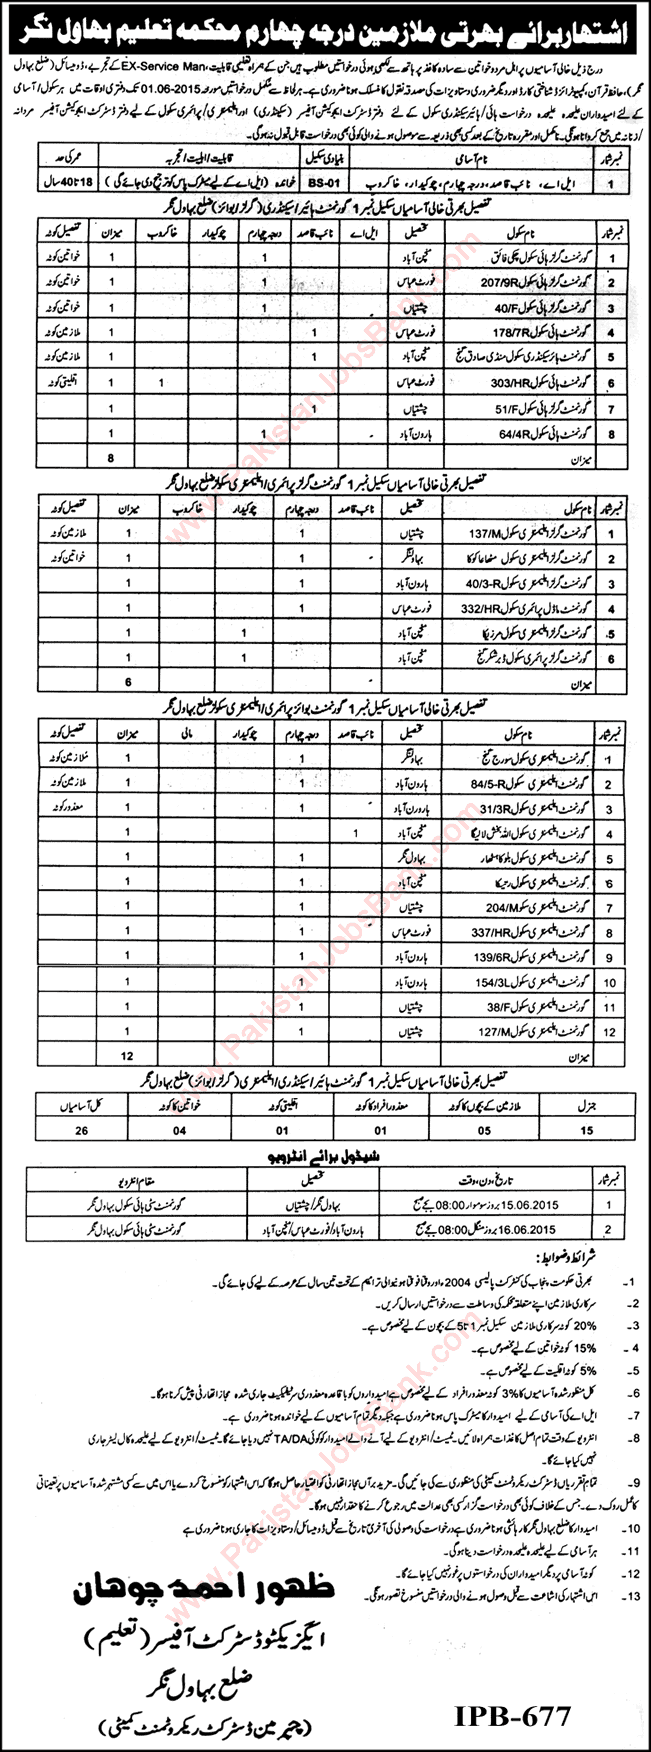 اشتہار برائے بھرتی ملازمین درجہ چہارم محکمہ تعلیم بہاول نگر
درج ذیل خالی آسامیوں پر اہل مرد و خواتین سے سادہ کاغذ پر ہاتھ سے لکھی ہوئی درخواستیں مطلوب ہیں جن کے ہمراہ تعلیمی قابلیت، EX-Service Man، کے تجربے، ڈومیسائل (ضلع بہاول
نگر) حافظ قرآن، کمپیوٹرائزڈ شناختی کارڈ اور دیگر ضروری دستاویزات کی مصدقہ نقول کا منسلک ہونا ضروری ہے۔ ہر لحاظ سے مکمل درخواستیں مورخہ 01.06-2015 تک دفتری اوقات میں ہر سکول/آسامی
کے لئے امیدواران علیحدہ علیحدہ درخواست ہائی/ہائیر سیکنڈری سکول کے لئے دفتر ڈسٹرکٹ ایجوکیشن آفیسر (سیکنڈری) اور ایلیمنٹری/پرائمری سکول کے لئے دفتر ڈسٹرکٹ ایجوکیشن آفیسر مردانہ
/زنانہ میں جمع کروانا ہوگی۔ نامکمل اور مقررہ تاریخ کے بعد کسی بھی ذریعہ سے موصول ہونے والی کوئی بھی درخواست قابل قبول نہ ہوگی۔
نمبر شمار نام آسامی بنیادی سکیل قابلیت/اہلیت/تجربہ عمر کی حد
1 ایل اے، نائب قاصد، درجہ چہارم، چوکیدار، خاکروب BS-01 خواندہ (ایل اے کے لیے میٹرک پاس کو ترجیح دی جائے گی) 18 تا 40 سال
تفصیل بھرتی خالی آسامیاں سکیل نمبر 1 گورنمنٹ ہائیر/سیکنڈری (گرلز/بوائز) ضلع بہاول نگر
نمبر شمار نام سکول تحصیل ایل اے نائب قاصد درجہ چہارم چوکیدار خاکروب میزان تفصیل کوٹہ
1 گورنمنٹ گرلز ہائی سکول چکی فائق منچن آباد 1 1 خواتین کوٹہ
2 گورنمنٹ گرلز ہائی سکول 207/9R فورٹ عباس 1 1 خواتین کوٹہ
3 گورنمنٹ گرلز ہائی سکول 40/F چشتیاں 1 1 خواتین کوٹہ
4 گورنمنٹ ہائی سکول 178/7R فورٹ عباس 1 1 ملازمین کوٹہ
5 گورنمنٹ ہائیر سیکنڈری سکول منڈی صادق گنج منچن آباد 1 1 ملازمین کوٹہ
6 گورنمنٹ ہائی سکول 303/HR فورٹ عباس 1 1 اقلیتی کوٹہ
7 گورنمنٹ گرلز ہائی سکول 51/F چشتیاں 1 1
8 گورنمنٹ ہائی سکول 64/4R ہارون آباد 1 1
میزان 8
تفصیل بھرتی خالی آسامیاں سکیل نمبر 1 گورنمنٹ گرلز پرائمری/ایلیمنٹری سکولز ضلع بہاول نگر
نمبر شمار نام سکول تحصیل نائب قاصد درجہ چہارم چوکیدار خاکروب میزان تفصیل کوٹہ
1 گورنمنٹ گرلز ایلیمنٹری سکول 137/M چشتیاں 1 1 ملازمین کوٹہ
2 گورنمنٹ گرلز ایلیمنٹری سکول کوکا بہاولنگر 1 1 خواتین کوٹہ
3 گورنمنٹ گرلز ایلیمنٹری سکول 40/3-R ہارون آباد 1 1
4 گورنمنٹ ماڈل پرائمری سکول 332/HR فورٹ عباس 1 1
5 گورنمنٹ گرلز ایلیمنٹری سکول منچن آباد 1 1
6 گورنمنٹ گرلز پرائمری سکول گنج منچن آباد 1 1
میزان 6
تفصیل بھرتی خالی آسامیاں سکیل نمبر 1 گورنمنٹ بوائز پرائمری/ایلیمنٹری سکولز ضلع بہاول نگر
نمبر شمار نام سکول تحصیل نائب قاصد درجہ چہارم چوکیدار مالی میزان تفصیل کوٹہ
1 گورنمنٹ ایلیمنٹری سکول سورج گنج بہاولنگر 1 1 ملازمین کوٹہ
2 گورنمنٹ ایلیمنٹری سکول 84/5-R ہارون آباد 1 1 ملازمین کوٹہ
3 گورنمنٹ ایلیمنٹری سکول 31/3R ہارون آباد 1 1 معذور کوٹہ
4 گورنمنٹ ایلیمنٹری سکول اللہ بخش لالیکا منچن آباد 1 1
5 گورنمنٹ ایلیمنٹری سکول بہاول نگر 1 1
6 گورنمنٹ ایلیمنٹری سکول منچن آباد 1 1
7 گورنمنٹ ایلیمنٹری سکول 204/M چشتیاں 1 1
8 گورنمنٹ ایلیمنٹری سکول 337/HR فورٹ عباس 1 1
9 گورنمنٹ ایلیمنٹری سکول 139/6R ہارون آباد 1 1
10 گورنمنٹ ایلیمنٹری سکول 154/3L ہارون آباد 1 1
11 گورنمنٹ ایلیمنٹری سکول 38/F چشتیاں 1 1
12 گورنمنٹ ایلیمنٹری سکول 127/M چشتیاں 1 1
میزان 12
تفصیل بھرتی خالی آسامیاں سکیل نمبر 1 گورنمنٹ ہائیر/سیکنڈری/ایلیمنٹری (گرلز/بوائز) ضلع بہاول نگر
جنرل ملازمین کے بچوں کا کوٹہ معذور افراد کا کوٹہ اقلیتی کوٹہ خواتین کا کوٹہ کل آسامیاں
15 05 01 01 04 26
شیڈول برائے انٹرویو
نمبر شمار تاریخ، دن، وقت تحصیل مقام انٹرویو
1 15.06.2015 بروز سوموار 08:00 بجے صبح بہاول نگر/چشتیاں گورنمنٹ سٹی ہائی سکول بہاول نگر
2 16.06.2015 بروز منگل 08:00 بجے صبح ہارون آباد/فورٹ عباس/منچن آباد گورنمنٹ سٹی ہائی سکول بہاول نگر
شرائط و ضوابط:
1- بھرتی حکومت پنجاب کی کنٹریکٹ پالیسی 2004ء اور وقتاً فوقتاً ہونیوالی ترامیم کے تحت تین سال کے عرصہ کے لیے کی جائے گی۔
2- سرکاری ملازمین اپنے متعلقہ محکمہ کی وساطت سے درخواستیں ارسال کریں۔
3- 20% کوٹہ سرکاری ملازمین سکیل نمبر 1 تا 5 کے بچوں کے لیے مخصوص ہے۔
4- 15% کوٹہ خواتین کے لیے مخصوص ہے۔
5- 5% کوٹہ اقلیت کے لیے مخصوص ہے۔
6- کل منظور شدہ آسامیوں کا 3% کوٹہ معذور افراد کے لیے مخصوص ہے امیدواروں کو باقاعدہ معذوری سرٹیفکیٹ جاری شدہ مجاز اتھارٹی پیش کرنا ہوگا۔
7- ایل اے کی آسامی کے لیے امیدوار کا میٹرک پاس ہونا ضروری ہے جبکہ دیگر تمام آسامیوں کے لیے خواندہ ہونا ضروری ہے۔
8- انٹرویو کے وقت تمام اصل کاغذات ہمراہ لائیں۔ ٹیسٹ/انٹرویو کے لیے آنے والے امیدوار کو کوئی TA/DA نہیں دیا جائے گا۔ ٹیسٹ/انٹرویو کے لیے علیحدہ کال لیٹر جاری
نہیں کیا جائے گا۔
9- تمام تقرریاں ڈسٹرکٹ ریکروٹمنٹ کمیٹی کی منظوری سے کی جائیں گی۔ مزید برآں مجاز اتھارٹی کو اختیار حاصل ہوگا کہ اس اشتہار کو منسوخ کر دے یا اس میں سے کسی مشتہر شدہ آسامیوں پر تعیناتی
کا عمل روک دے۔ جس کے خلاف کوئی بھی درخواست گزار کسی بھی عدالت میں رجوع کرنے کا حقدار نہیں ہوگا۔
10- امیدوار کا ضلع بہاول نگر کا رہائشی ہونا ضروری ہے درخواست کی وصولی کی آخری تاریخ سے قبل ڈومیسائل/دستاویزات کا جاری ہونا ضروری ہے
11- ہر آسامی کے لیے علیحدہ علیحدہ درخواست دینا ہوگی۔
12- کوٹہ آسامی پر دیگر امیدواران کی درخواستوں پر غور نہیں کیا جائے گا۔
13- اس اشتہار کی اشاعت سے قبل وصول ہونے والی درخواستیں منسوخ تصور ہوگی۔
ظہور احمد چوہان
ایگزیکٹو ڈسٹرکٹ آفیسر (تعلیم)
ضلع بہاول نگر
(چیئرمین ڈسٹرکٹ ریکروٹمنٹ کمیٹی)
IPB-677
www.PakistanJobsBank.com
www.PakistanJobsBank.com
www.PakistanJobsBank.com